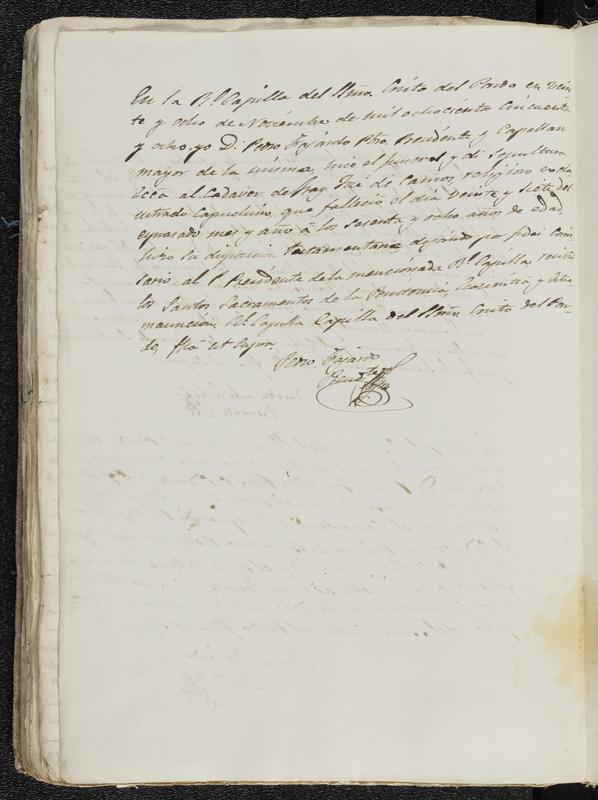 En la Rl. Capilla del Stmo. Cristo del Pardo en vein
te y ocho de Noviembre de mil ochociento cincuenta
y ocho. yo D. Pedro Fajardo Pbro. Presidente y Capellan
mayor de la misma, hice el funeral y di Sepultura
al Cadaver de Fray José de religioso exclaus
trado Capuchino, que fallecio el dia veinte y siete del
espresado mes y año à los sesenta y ocho años de edad,
hizo su disposicion testamentaria dejando por fidei comi
sario al Sr. Presidente de la mencionada Rl. Capilla, recibio
los Santos Sacramentos de la Penitencia, y Extre
maunción, Rl. Capilla del Stmo. Cristo del Par-
do, fha ut supra
Pedro Fajardo